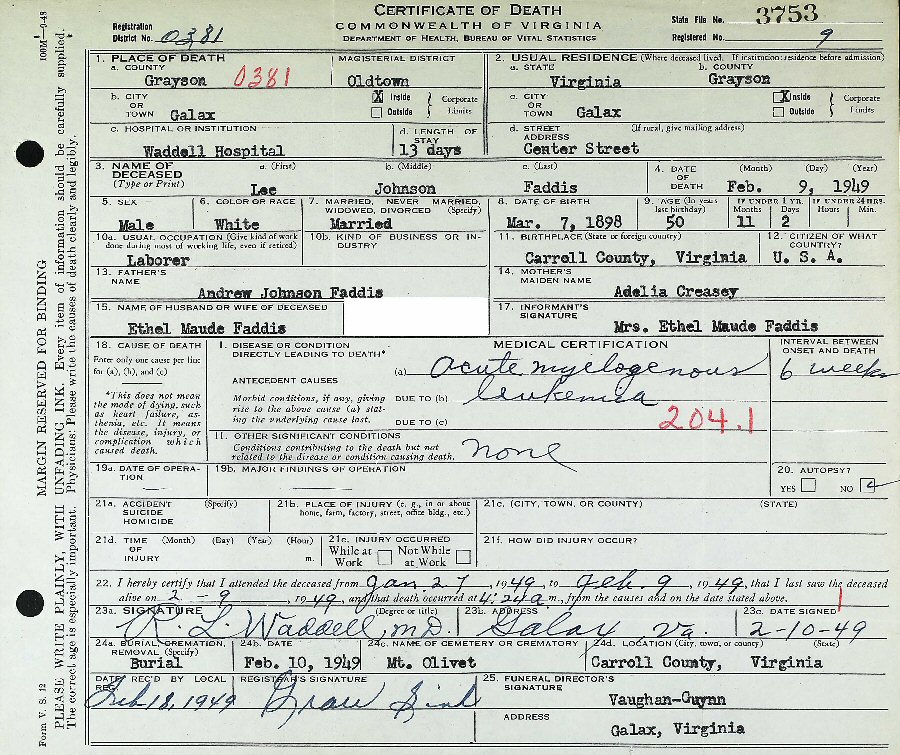 CERTIFICATE OF DEATH
COMMONWEALTH OF VIRGINIA
DEPARTMENT OF HEALTH, BUREAU OF VITAL STATISTICS
Registration District No. 0381
State File No. 3753
Registered No. 9
1. PLACE OF DEATH
a. COUNTY
Grayson 0381
MAGISTERIAL DISTRICT
Oldtown
2. USUAL RESIDENCE (Where deceased lived. If institution: residence before admission)
a. STATE
Virginia
b. COUNTY
Grayson
b. CITY OR TOWN Galax
X Inside
Outside
Corporate Limits
c. CITY OR TOWN Galax
X Inside
Outside
Corporate Limits
c. HOSPITAL OR INSTITUTION
Waddell Hospital
d. LENGTH OF STAY
13 days
d. STREET ADDRESS (If rural, give mailing address)
Center Street
3. NAME OF DECEASED (Type or Print)
a. (First) b. (Middle) c. (Last)
Lee Johnson Faddis
4. DATE OF DEATH (Month) (Day) (Year)
Feb. 9, 1949
5. SEX
Male
6. COLOR OR RACE
White
7. MARRIED, NEVER MARRIED, WIDOWED, DIVORCED (Specify)
Married
8. DATE OF BIRTH
Mar. 7, 1898
9. AGE (In years last birthday)
50
IF UNDER 1 YR. Months Days
11 2
IF UNDER 24 HRS. Hours Min.
10a. USUAL OCCUPATION (Give kind of work done during most of working life, even if retired)
Laborer
10b. KIND OF BUSINESS OR INDUSTRY
11. BIRTHPLACE (State or foreign country)
Carroll County, Virginia
12. CITIZEN OF WHAT COUNTRY?
U. S. A.
13. FATHER'S NAME
Andrew Johnson Faddis
14. MOTHER'S MAIDEN NAME
Adelia Creasey
15. NAME OF HUSBAND OR WIFE OF DECEASED
Ethel Maude Faddis
17. INFORMANT'S SIGNATURE
Mrs. Ethel Maude Faddis
18. CAUSE OF DEATH
Enter only one cause per line for (a), (b), and (c)
*This does not mean the mode of dying, such as heart failure, asthenia, etc. It means the disease, injury, or complication which caused death.
MEDICAL CERTIFICATION
I. DISEASE OR CONDITION DIRECTLY LEADING TO DEATH*
(a) Acute myelogenous
ANTECEDENT CAUSES
Morbid conditions, if any, giving rise to the above cause (a) stating the underlying cause last.
DUE TO (b) leukemia
DUE TO (c)
204.1
INTERVAL BETWEEN ONSET AND DEATH
6 weeks
II. OTHER SIGNIFICANT CONDITIONS
Conditions contributing to the death but not related to the disease or condition causing death.
none
19a. DATE OF OPERATION
19b. MAJOR FINDINGS OF OPERATION
20. AUTOPSY?
YES NO
21a. ACCIDENT SUICIDE HOMICIDE (Specify)
21b. PLACE OF INJURY (e. g., in or about home, farm, factory, street, office bldg., etc.)
21c. (CITY, TOWN, OR COUNTY) (STATE)
21d. TIME OF INJURY (Month) (Day) (Year) (Hour) m.
21e. INJURY OCCURRED
While at Work Not While at Work
21f. HOW DID INJURY OCCUR?
22. I hereby certify that I attended the deceased from Jan 27, 1949, to Feb. 9, 1949, that I last saw the deceased
alive on 2-9, 1949, and that death occurred at 4:24a m., from the causes and on the date stated above.
23a. SIGNATURE (Degree or title)
R. L. Waddell, M.D.
23b. ADDRESS
Galax Va.
23c. DATE SIGNED
2-10-49
24a. BURIAL, CREMATION, REMOVAL (Specify)
Burial
24b. DATE
Feb. 10, 1949
24c. NAME OF CEMETERY OR CREMATORY
Mt. Olivet
24d. LOCATION (City, town, or county) (State)
Carroll County, Virginia
DATE REC'D BY LOCAL REG.
Feb 18, 1949
REGISTRAR'S SIGNATURE
25. FUNERAL DIRECTOR'S SIGNATURE
Vaughan-Guynn
ADDRESS
Galax, Virginia
100M
MARGIN RESERVED FOR BINDING
PLEASE WRITE PLAINLY, WITH UNFADING INK. Every item of information should be carefully supplied.
The correct age is especially important. Physicians: Please write the causes of death clearly and legibly.
Form V. S. 12